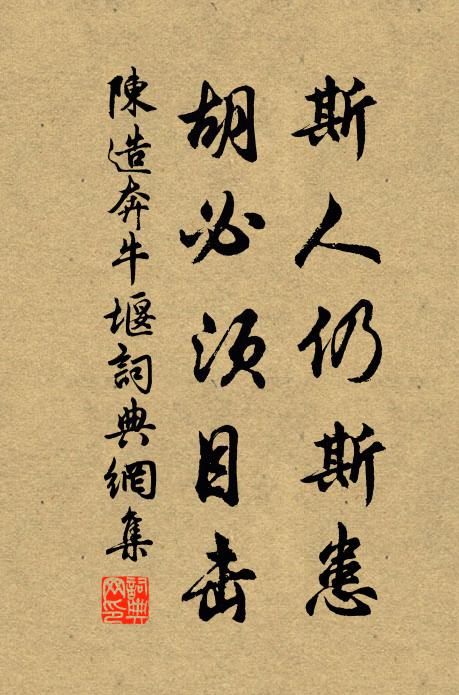 斯人仍斯患
胡必須目击
陳造奔牛堰詞典網集
詞典网印